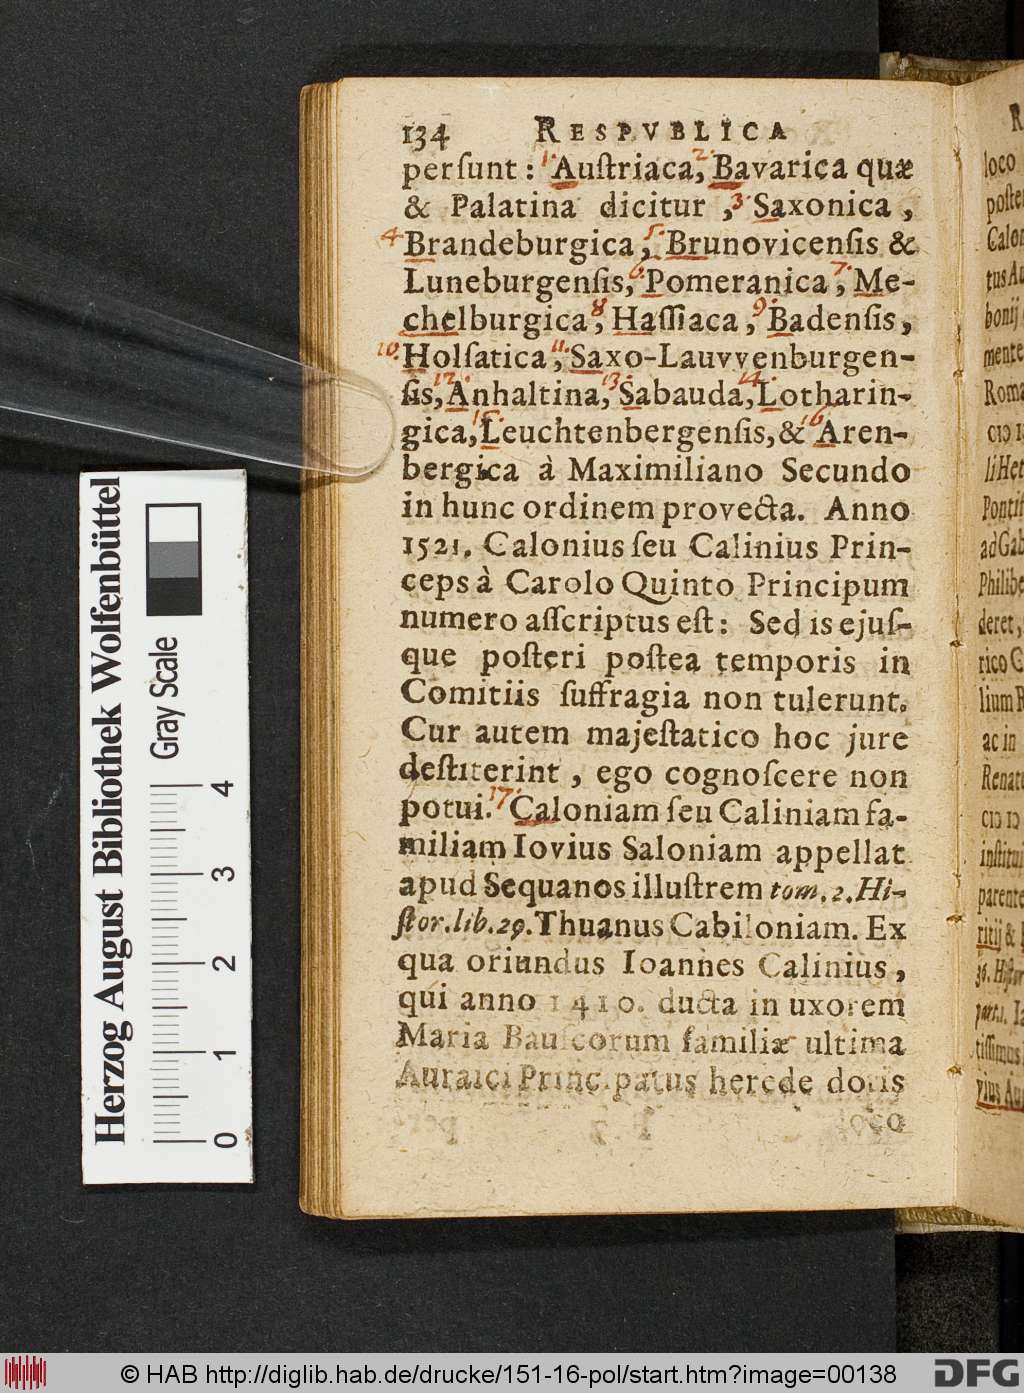 134 RESPVBLICA
perſunt: 1. Auſtriaca, 2. Bavarica quæ
& Palatina dicitur, 3. Saxonica,
4. Brandeburgica, 5. Brunovicenſis &
Luneburgenſis, 6. Pomeranica, 7. Me-
chelburgica, 8. Haſſiaca, 9. Badenſis,
10. Holſatica, 11. Saxo-Lauvvenburgen-
ſis, 12. Anhaltina, 13. Sabauda, 14. Lotharin-
gica, 15. Leuchtenbergenſis, & 16. Aren-
bergica à Maximiliano Secundo
in hunc ordinem provecta. Anno
1521. Calonius ſeu Calinius Prin-
ceps à Carolo Quinto Principum
numero aſſcriptus eſt: Sed is ejuſ-
que poſteri poſtea temporis in
Comitiis ſuffragia non tulerunt.
Cur autem majeſtatico hoc jure
deſtiterint, ego cognoſcere non
potui. 17. Caloniam ſeu Caliniam fa-
miliam Iovius Saloniam appellat
apud Sequanos illuſtrem tom. 2. Hi-
ſtor. lib. 29. Thuanus Cabiloniam. Ex
qua oriundus Ioannes Calinius,
qui anno 1410. ducta in uxorem
Maria Bauſcorum familiæ ultima
Auraici Principatus herede dotis
loco
poſte
Calon
tus Au
bonij
mente
Roma
cIↄ
li Het
Pontif
ad Gab
Philibe
deret,
rico C
lium R
ac in
Renat
cIↄ Iↄ
inſtitui
parente
ritij &
36. Hiſtor
part. 1. Ia
tiſſimus
vius Au
Herzog August Bibliothek Wolfenbüttel
Gray Scale
0 1 2 3 4
© HAB http://diglib.hab.de/drucke/151-16-pol/start.htm?image=00138
DFG